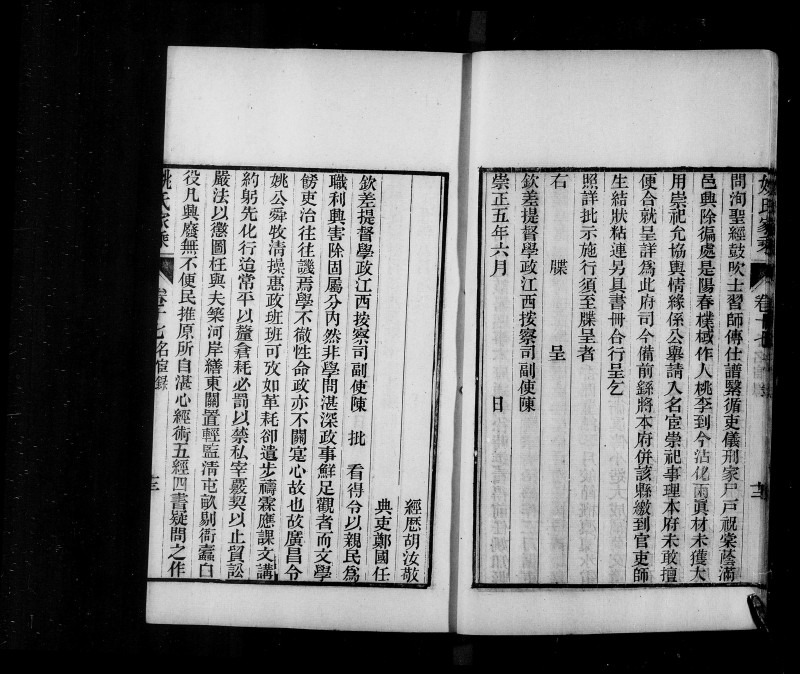 問洵聖經鼓吹士習師傳仕譜緊循吏儀刑家尸戸祝棠蔭滿
邑興除徧處是陽春樸棫作人桃李到今沾佬雨眞材未獲大
用崇祀允協輿情緣係公舉請入名宦崇祀事理本府未敢擅
便合就呈詳爲此府司今備前繇將本府併該縣繳到官吏師
生結狀粘連另具書冊合行呈乞
照詳批示施行須至牒呈者
右牒呈
欽差提督學政江西按察司副使陳
崇正五年六月日
經歷胡汝敬
典吏鄭國任
欽差提督學政江西按察司副使陳批看得令以親民爲
職利興害除固屬分內然非學問湛深政事鮮足觀者而文學
飭吏治往往譏焉學不徹性命政亦不關寔心故也故廣昌令
姚公舜牧清操惠政班班可攷如革耗卻遺步禱霖應課文講
約躬先化行追常平以釐倉耗必罰以禁私宰嚴契以止貿訟
嚴法以懲圖枉與夫築河岸繕東關置輕監清屯畝剔衙蠹白
役凡興廢無不便民推原所自湛心經術五經四書疑問之作
姚氏家乘
卷十七名宦錄
三